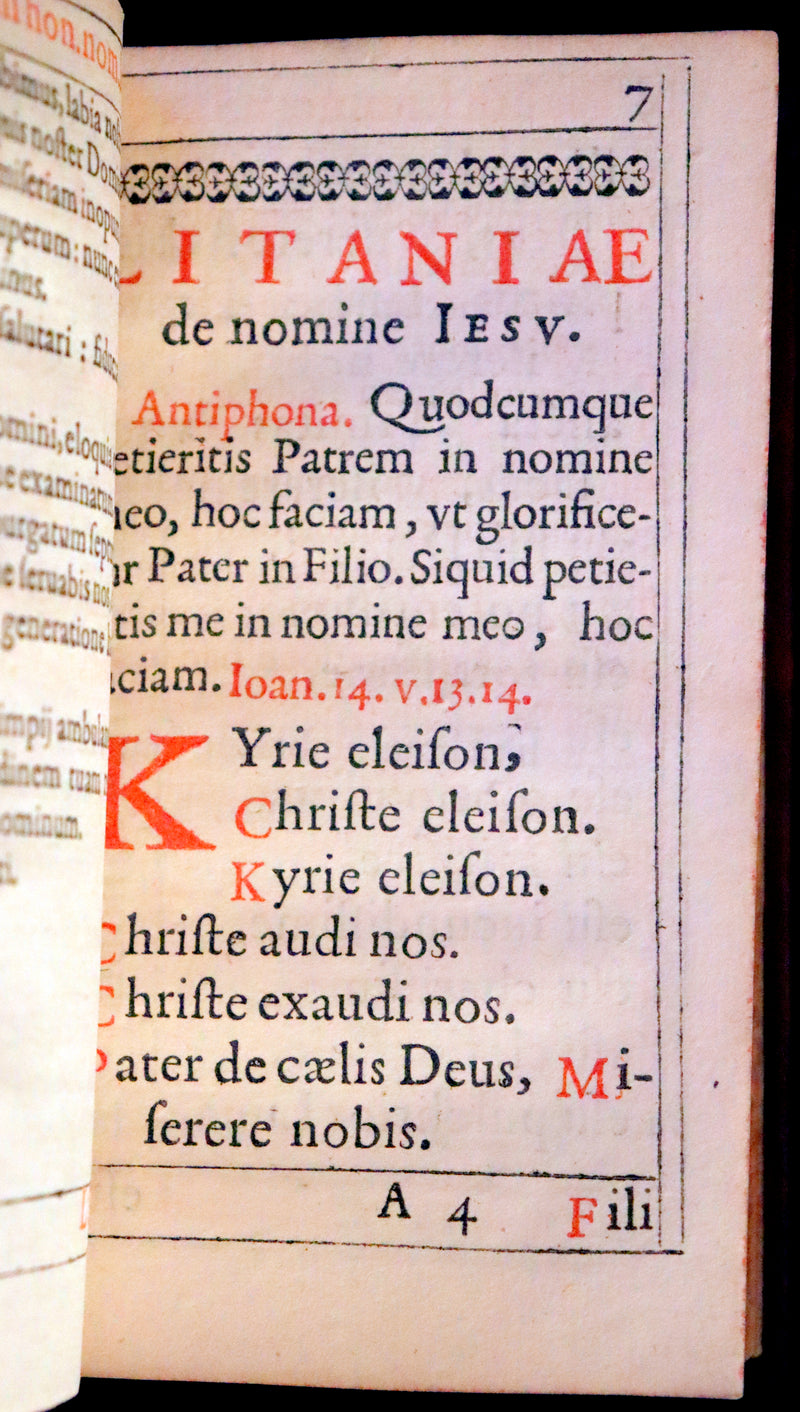 n non.nom
bimus, labia no
uis noſter Dom
miſeriam inopu
uperum: nunc e
inus.
ſalutari : fidu
omini, eloqui
ne examinatum
urgatum ſept
e ſeruabis nos
generatione
impij ambulan
dinem tuam
ominum.
7
LITANIAE
de nomine IESV.
Antiphona. Quodcumque
etieritis Patrem in nomine
meo, hoc faciam, vt glorifice-
ur Pater in Filio. Siquid petie-
tis me in nomine meo, hoc
aciam. Ioan. 14. v.13.14.
KYrie eleiſon,
Chriſte eleiſon.
Kyrie eleiſon.
Chriſte audi nos.
Chriſte exaudi nos.
Pater de cælis Deus, Mi-
ſerere nobis.
A 4 Fili